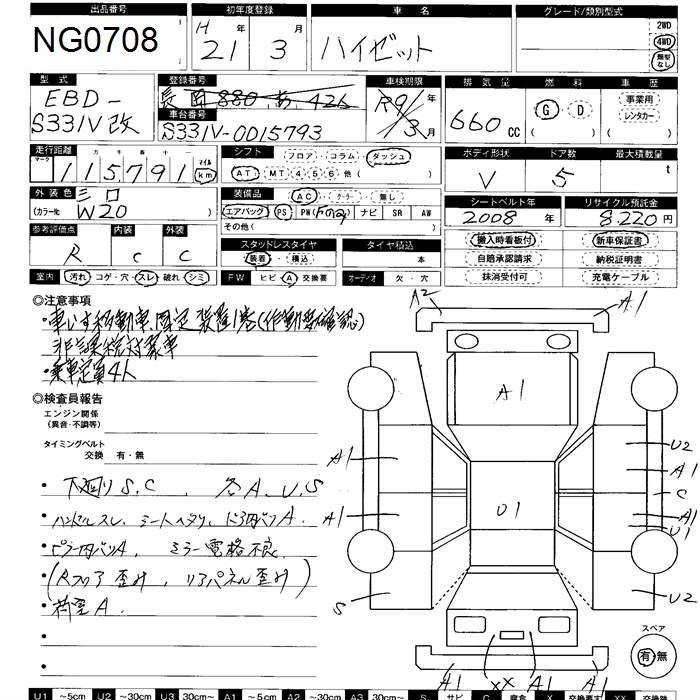 出品番号 初年度登録 車名 グレード/類別型式
NG0708 H 21年 3月 ハイゼット 2WD
4WD
類型なし
型式 登録番号 車検期限 排気量 燃料 車歴
EBD- 長岡 880 あ 426 R9年 660cc G D 事業用
S331V改 車台番号 3月 ( ) レンタカー
S331V-0015793 ( )
走行距離 シフト フロア コラム ダッシュ ボディ形状 ドア数 最大積載量
マーク 十 万 千 百 十 一 マイル
115791 km AT MT 4 5 6 他( ) V 5 t
外装色 三口 装備品 AC クーラー 無し シートベルト年 リサイクル預託金
(カラー№ W20 ) エアバッグ PS PW(Fのみ) ナビ SR AW 2008年 8220円
参考評価点 内装 外装 その他( ) 搬入時看板付 新車保証書
R C C スタッドレスタイヤ タイヤ積込 自賠承認請求 納税証明書
装着 積込 本 抹消受付可 充電ケーブル
室内 汚れ コゲ・穴 スレ 破れ シミ FW ヒビ A 交換要 オーディオ 欠・穴
◎注意事項
・車いす移動車.固定装置1基(作動要確認)
非課税対象車
・乗車定員4人
◎検査員報告
エンジン関係
(異音・不調等)
タイミングベルト
交換 有・無
・下廻りS.C . 各A.U.S
・ハンドルスレ、シートヘタリ、ドア内バリA.
・ピラー内バリA、ミラー電格不良.
・(Rフロア歪み、リアパネル歪み)
・荷室A.
A2 A1
A1
A1 U2
A1
C
A1 U1 A1
U1
S U2
A1 XX A1 A1
スペア
有・無
U1 ~5cm U2 ~30cm U3 30cm~ A1 ~5cm A2 ~30cm A3 30cm~ S サビ C 腐食 X 交換要す XX 交換跡